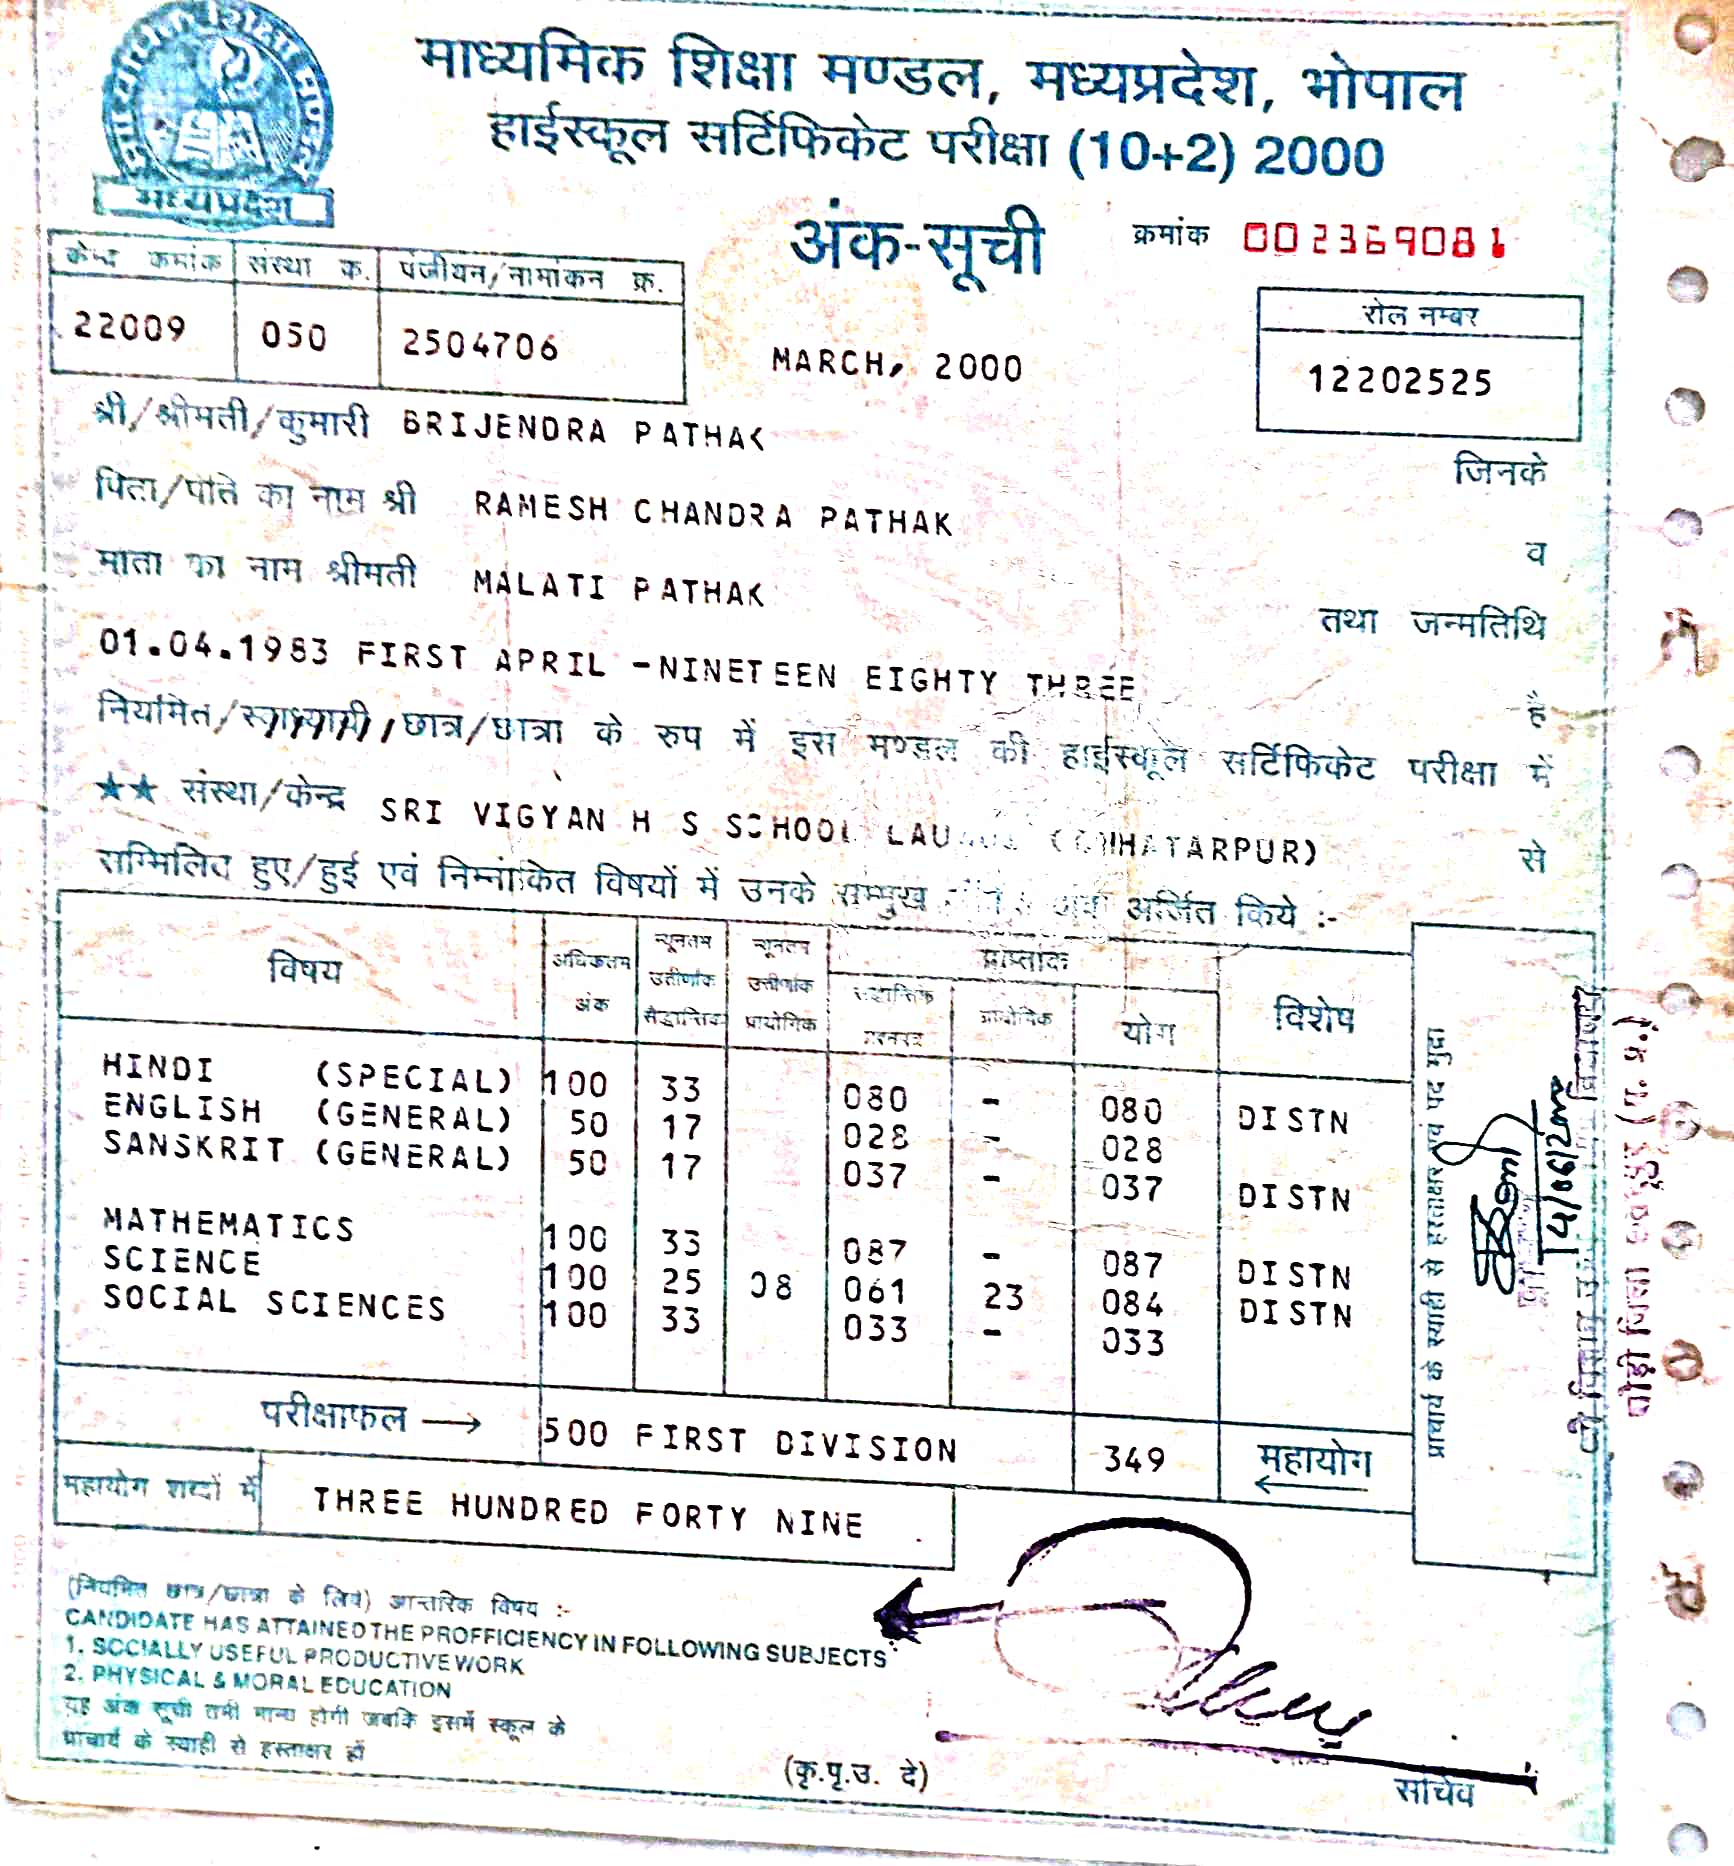 माध्यमिक शिक्षा मण्डल, मध्यप्रदेश, भोपाल
हाईस्कूल सर्टिफिकेट परीक्षा (10+2) 2000
मध्यप्रदेश
अंक-सूची
क्रमांक 002369081
केन्द्र कमांक संस्था क. पंजीयन/नामांकन क्र.
22009 050 2504706
MARCH, 2000
रोल नम्बर
12202525
श्री/श्रीमती/कुमारी BRIJENDRA PATHAK
जिनके
पिता/पति का नाम श्री RAMESH CHANDRA PATHAK
व
माता का नाम श्रीमती MALATI PATHAK
तथा जन्मतिथि
01.04.1983 FIRST APRIL -NINETEEN EIGHTY THREE
है
नियमित/स्वाध्यायी/छात्र/छात्रा के रुप में इस मण्डल की हाईस्कूल सर्टिफिकेट परीक्षा में
★★ संस्था/केन्द्र SRI VIGYAN H S SCHOOL (CHHATARPUR) से
सम्मिलित हुए/हुई एवं निम्नांकित विषयों में उनके सम्मुख अर्जित किये :-
विषय अधिकतम अंक न्यूनतम उत्तीर्णांक सैद्धान्तिक न्यूनतम उत्तीर्णांक प्रायोगिक प्राप्तांक विशेष
सैद्धान्तिक प्रायोगिक योग
HINDI (SPECIAL) 100 33 080 - 080 DISTN
ENGLISH (GENERAL) 50 17 028 - 028
SANSKRIT (GENERAL) 50 17 037 - 037 DISTN
MATHEMATICS 100 33 087 - 087 DISTN
SCIENCE 100 25 08 061 23 084 DISTN
SOCIAL SCIENCES 100 33 033 - 033
परीक्षाफल → 500 FIRST DIVISION 349 महायोग ←
महायोग शब्दों में THREE HUNDRED FORTY NINE
प्राचार्य के स्याही से हस्ताक्षर एवं पद मुद्रा
14/06/2000
(नियमित छात्र/छात्रा के लिये) आन्तरिक विषय :-
CANDIDATE HAS ATTAINED THE PROFFICIENCY IN FOLLOWING SUBJECTS
1. SOCIALLY USEFUL PRODUCTIVE WORK
2. PHYSICAL & MORAL EDUCATION
यह अंक सूची तभी मान्य होगी जबकि इसमें स्कूल के
प्राचार्य के स्याही से हस्ताक्षर हों
(कृ.पृ.उ. दे)
सचिव